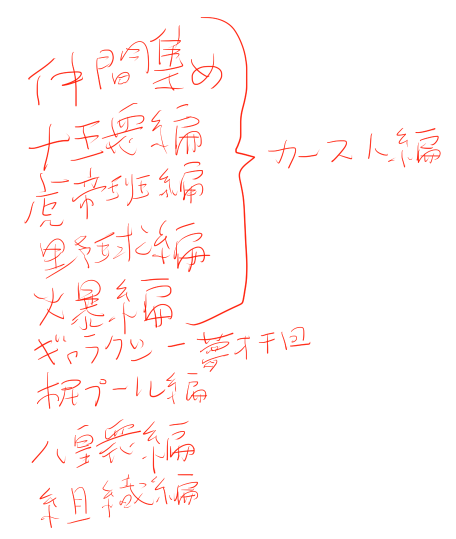 仲間集め
十五衆編
虎帝班編
野球編
火暴編
カースト編
ギャラクシー夢オチ回
梶プール編
八皇衆編
組織編